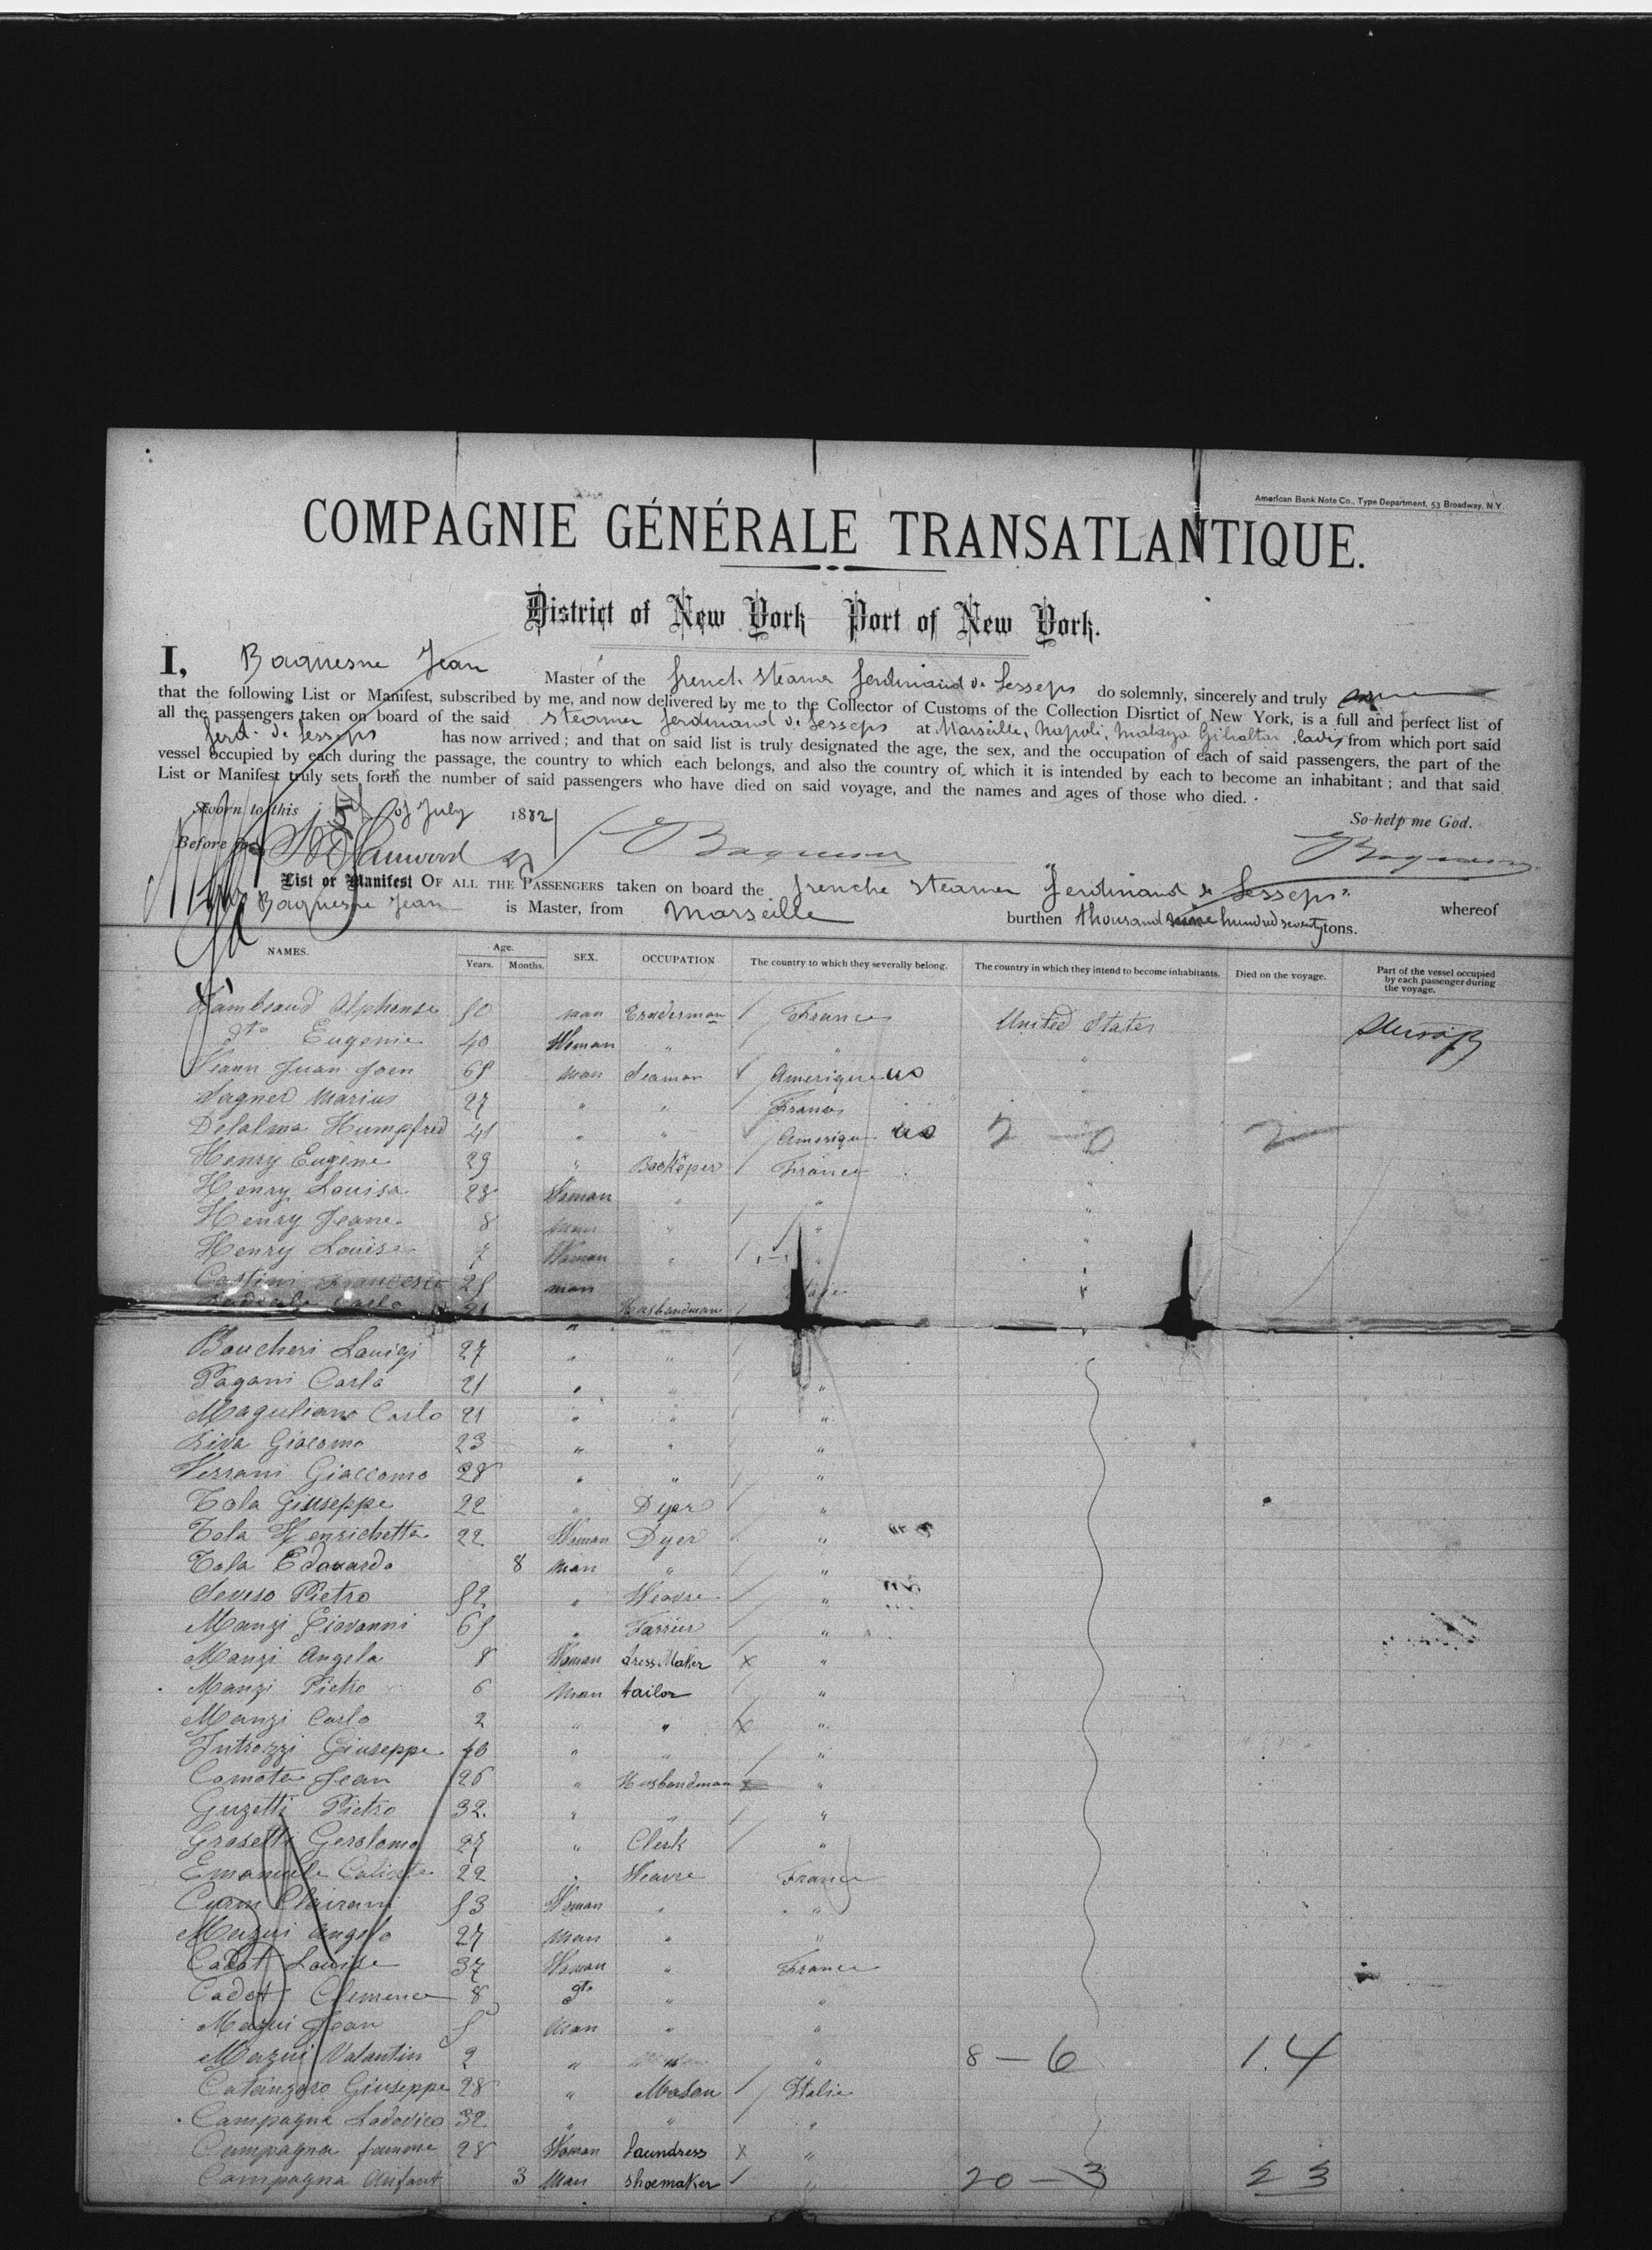 American Bank Note Co., Type Department, 53 Broadway, N.Y.
COMPAGNIE GÉNÉRALE TRANSATLANTIQUE.
District of New York Port of New York.
I, Baquesne Jean Master of the french steamer ferdinand de Lesseps do solemnly, sincerely and truly
that the following List or Manifest, subscribed by me, and now delivered by me to the Collector of Customs of the Collection Disrtict of New York, is a full and perfect list of
all the passengers taken on board of the said steamer ferdinand de Lesseps at Marseille, Napoli, Malaga Gibraltar from which port said
ferd. de Lesseps has now arrived; and that on said list is truly designated the age, the sex, and the occupation of each of said passengers, the part of the
vessel occupied by each during the passage, the country to which each belongs, and also the country of which it is intended by each to become an inhabitant; and that said
List or Manifest truly sets forth the number of said passengers who have died on said voyage, and the names and ages of those who died.
Sworn to this of July 1882
So help me God.
Before me Baquesne Baquesne
List or Manifest OF ALL THE PASSENGERS taken on board the frenche steamer "ferdinand de Lesseps" whereof
Baquesne Jean is Master, from Marseille burthen thousand nine hundred seventy tons.
NAMES. Age. Years. Months. SEX. OCCUPATION The country to which they severally belong. The country in which they intend to become inhabitants. Died on the voyage. Part of the vessel occupied by each passenger during the voyage.
Alphonse 50 man Traderman / France United States
dto Eugenie 40 Woman " / " "
Juan Joen 65 man Seaman / Amerique US
Marius 27 " " / France "
Humpfred 41 " " Amerique US 2 - 0 2
Henry Eugene 29 " Bookeper / France
Henry Louisa 28 Woman " " "
Henry Jeane 8 man " / " "
Henry Louise 7 Woman " / " "
Cassini Francesco 25 man
Carlo 21 Husbandman /
Boucheri Louigi 27 " " /
Pagani Carlo 21 " " / "
Maguliano Carlo 21 " " / "
Riva Giacomo 23 " " / "
Verrani Giaccomo 28 " " / "
Tola Giuseppe 22 " Dyer / "
Tola Henrichetta 22 Woman Dyer / "
Tola Edouardo 8 man " / "
Seveso Pietro 52 " Weavre / "
Manzi Giovanni 65 " Farrier / "
Manzi Angela 8 Woman dress Maker x "
Manzi Pietro 6 man tailor / "
Manzi Carlo 2 " " x "
Introzzi Giuseppe 40 " " / "
Comota Jean 26 " Husbandman x "
Guzetti Pietro 32. " " / "
Grasetti Gerolomo 27 " Clerk / "
Emanuele Calixte 22 " Weavre France
Clairani 53 Woman " "
Mazui Angelo 27 man " "
Cadot Louise 37 Woman " France
Cadot Clemence 8 dto " "
Mazui Jean 5 man " "
Mazui Valantin 2 " " 8 - 6 1.4
Catanzaro Giuseppe 28 " Mason / Italie
Campagna Lodovico 32 " " "
Campagna femme 28 Woman Laundress x "
Campagna Enfant 3 Man Shoemaker / " 20 - 3 23